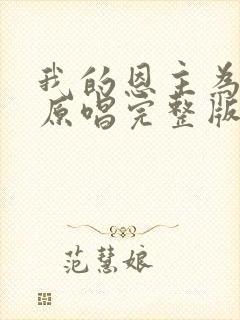 我的恩主为
原唱完整版
范慧娘